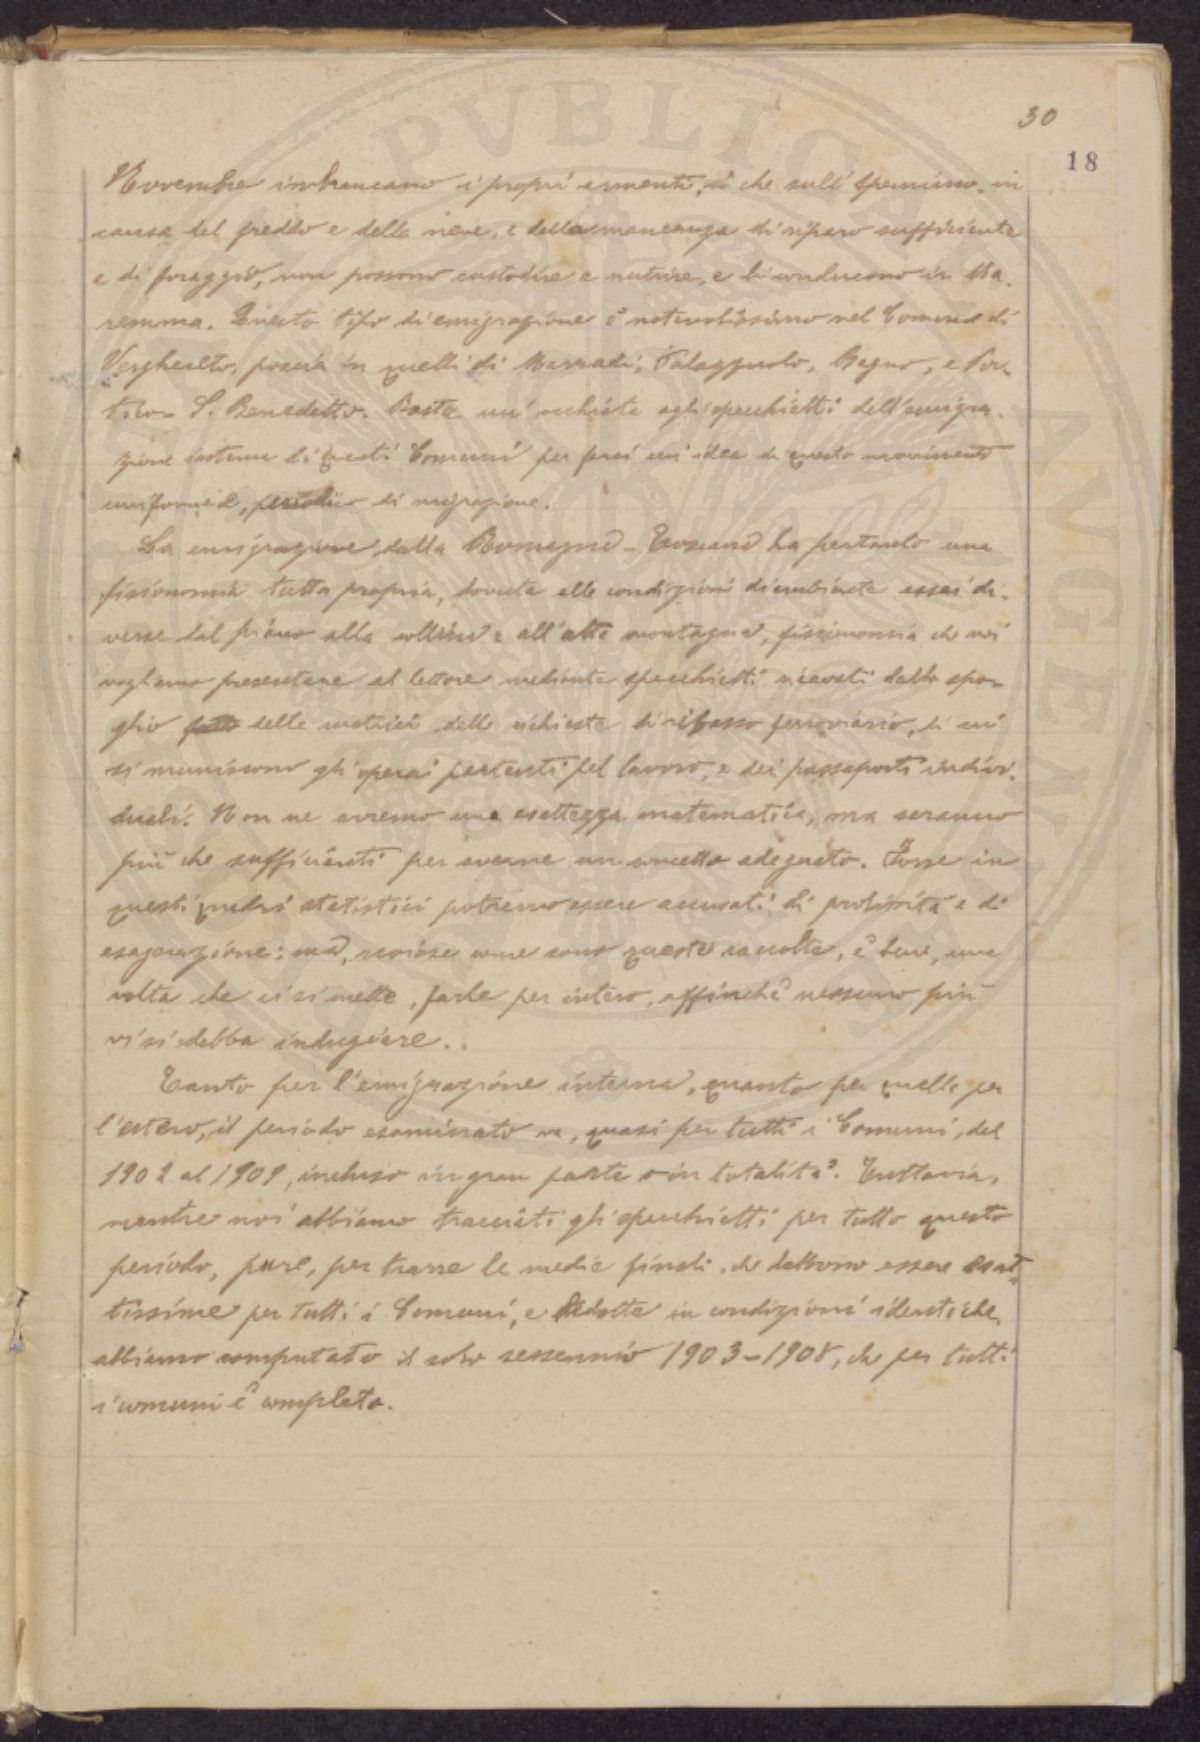 30
18
Novembre imbrancano i propri armenti, sì che sull'Apennino, in
causa del freddo e della neve, e della mancanza di riparo sufficiente
e di foraggio, non possono custodire e nutrire, e li conducono in Ma-
remma. Questo tipo di emigrazione è notevolissimo nel Comune di
Verghereto, poscia in quelli di Marradi, Palazzuolo, Bagno, e Por-
tico - S. Benedetto. Basta un'occhiata agli specchietti dell'emigra-
zione interna di questi Comuni per farsi un'idea di questo movimento
uniforme e, periodico di migrazione.
La emigrazione dalla Romagna - Toscana ha pertanto una
fisionomia tutta propria, dovuta alle condizioni di ambiente assai di-
verse dal piano alla collina e all'alta montagna, fisionomia che noi
vogliamo presentare al lettore mediante specchietti ricavati dallo spo-
glio fatto delle matrici delle richieste di ribasso ferroviario, di cui
si muniscono gli operai partenti pel lavoro, e dei passaporti indivi-
duali. Non ne avremo una esattezza matematica, ma saranno
più che sufficienti per averne un concetto adeguato. Forse in
questi quadri statistici potremo essere accusati di prolissità e di
esagerazione; ma, noiose come sono queste raccolte, è bene, una
volta che ci si mette, farle per intero, affinchè nessuno più
vi si debba indugiare.
Tanto per l'emigrazione interna, quanto per quella per
l'estero, il periodo esaminato va, quasi per tutti i Comuni, dal
1902 al 1909, incluso in gran parte o in totalità. Tuttavia,
mentre noi abbiamo tracciati gli specchietti per tutto questo
periodo, pure, per trarre le medie finali, che debbono essere esat-
tissime per tutti i Comuni, e ridotte in condizioni identiche,
abbiamo computato il solo sessennio 1903-1908, che per tutti
i comuni è completo.
PVBLICA
AVGEN